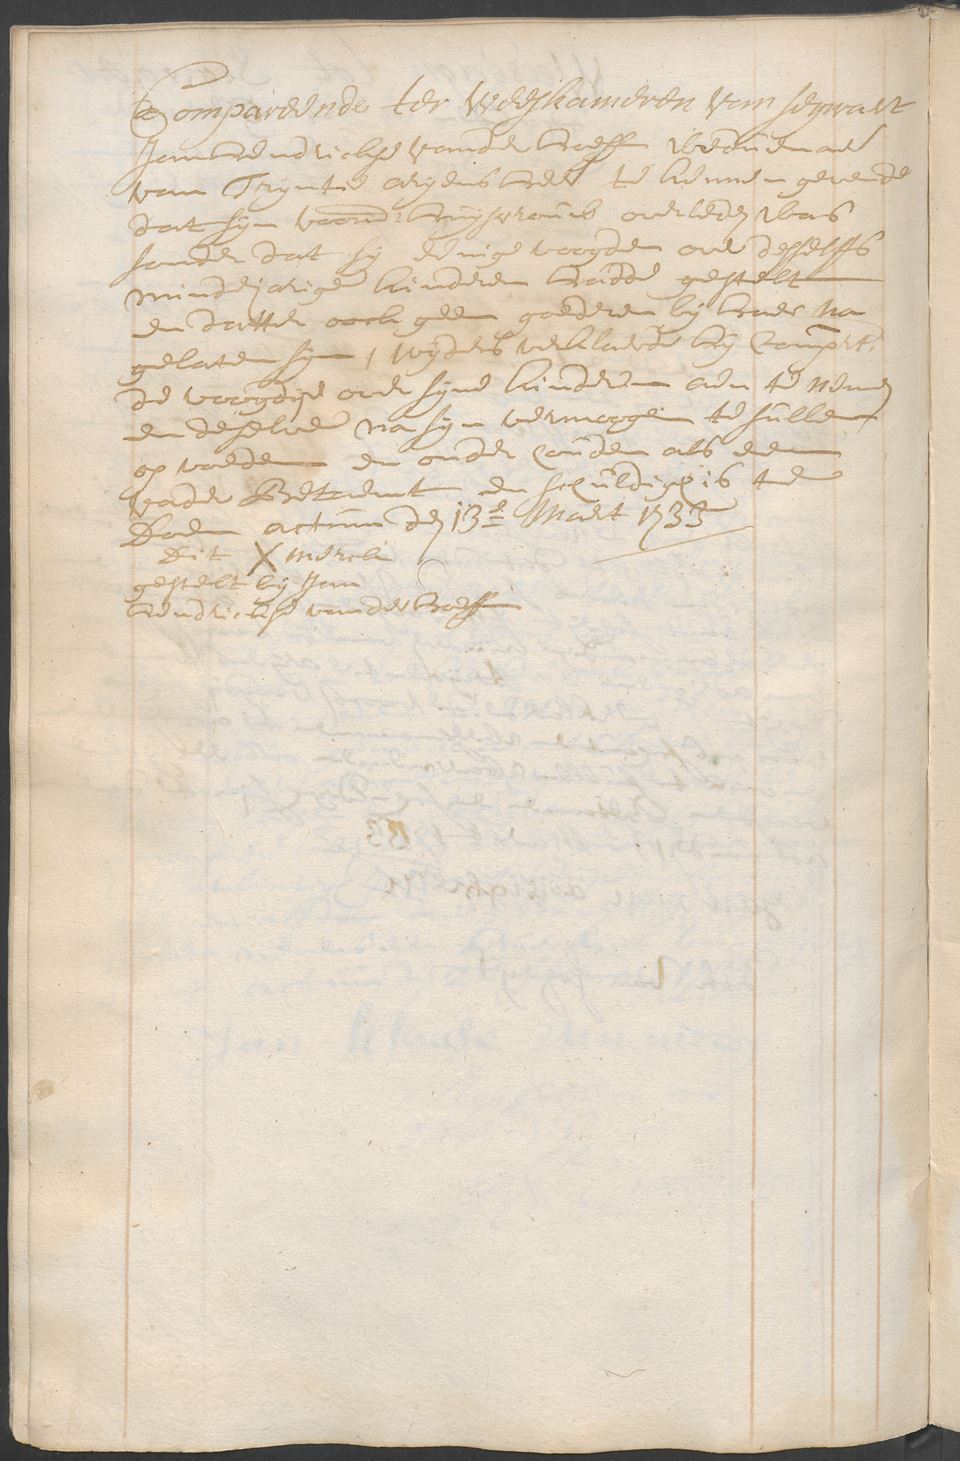 Compareerde ter Weeskameren van
Jan Hendrickse vander Hoeff Weduwnaer
van Tryntie Arijens Hee te kennen gevende
dat syn voorn: huijsvrouw overleden was
sonder dat sy eenige voogden over desselffs
minderjarige kinderen hadde gestelt
en datter oock geen goederen bij haer na
gelaten syn, wijders verklaerde hij Compt:
de voogdije over syne kinderen aen te nemen
en deselve na syn vermoogen te sullen
op voeden en onder houden als een
vader Betaemt en schuldigh is te
Doen actum den 13e Maert 1733
Dit X merck
gestelt bij Jan
Hendrickse vander Hoeff